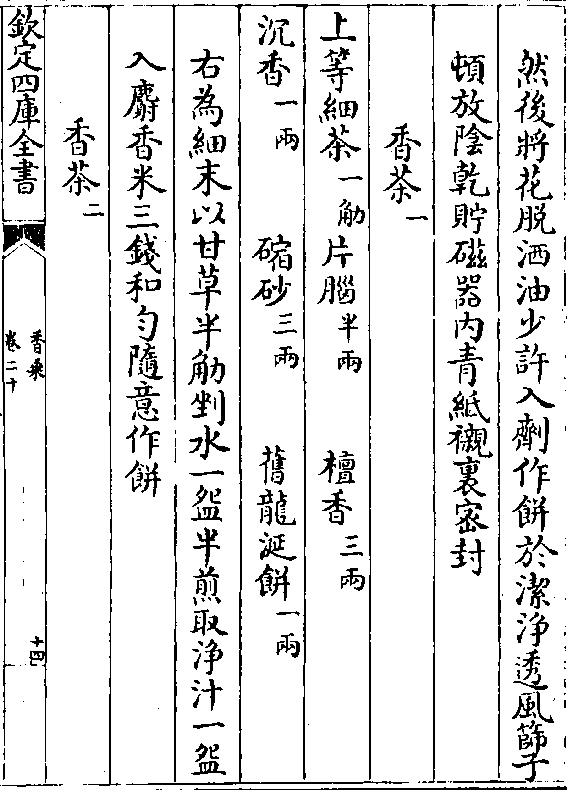 然後將花脱洒油少許入劑作餅於潔浄透風篩子
頓放陰乾貯磁器内青紙襯裹宻封
香茶一
上等細茶一觔 片腦半兩 檀香三兩
沉香一兩 縮砂三兩 舊龍涎餅一兩
右為細末以甘草半觔剉水一盌半煎取浄汁一盌
入麝香米三錢和匀隨意作餅
香茶二
欽定四庫全書
香乘
卷二十
十四